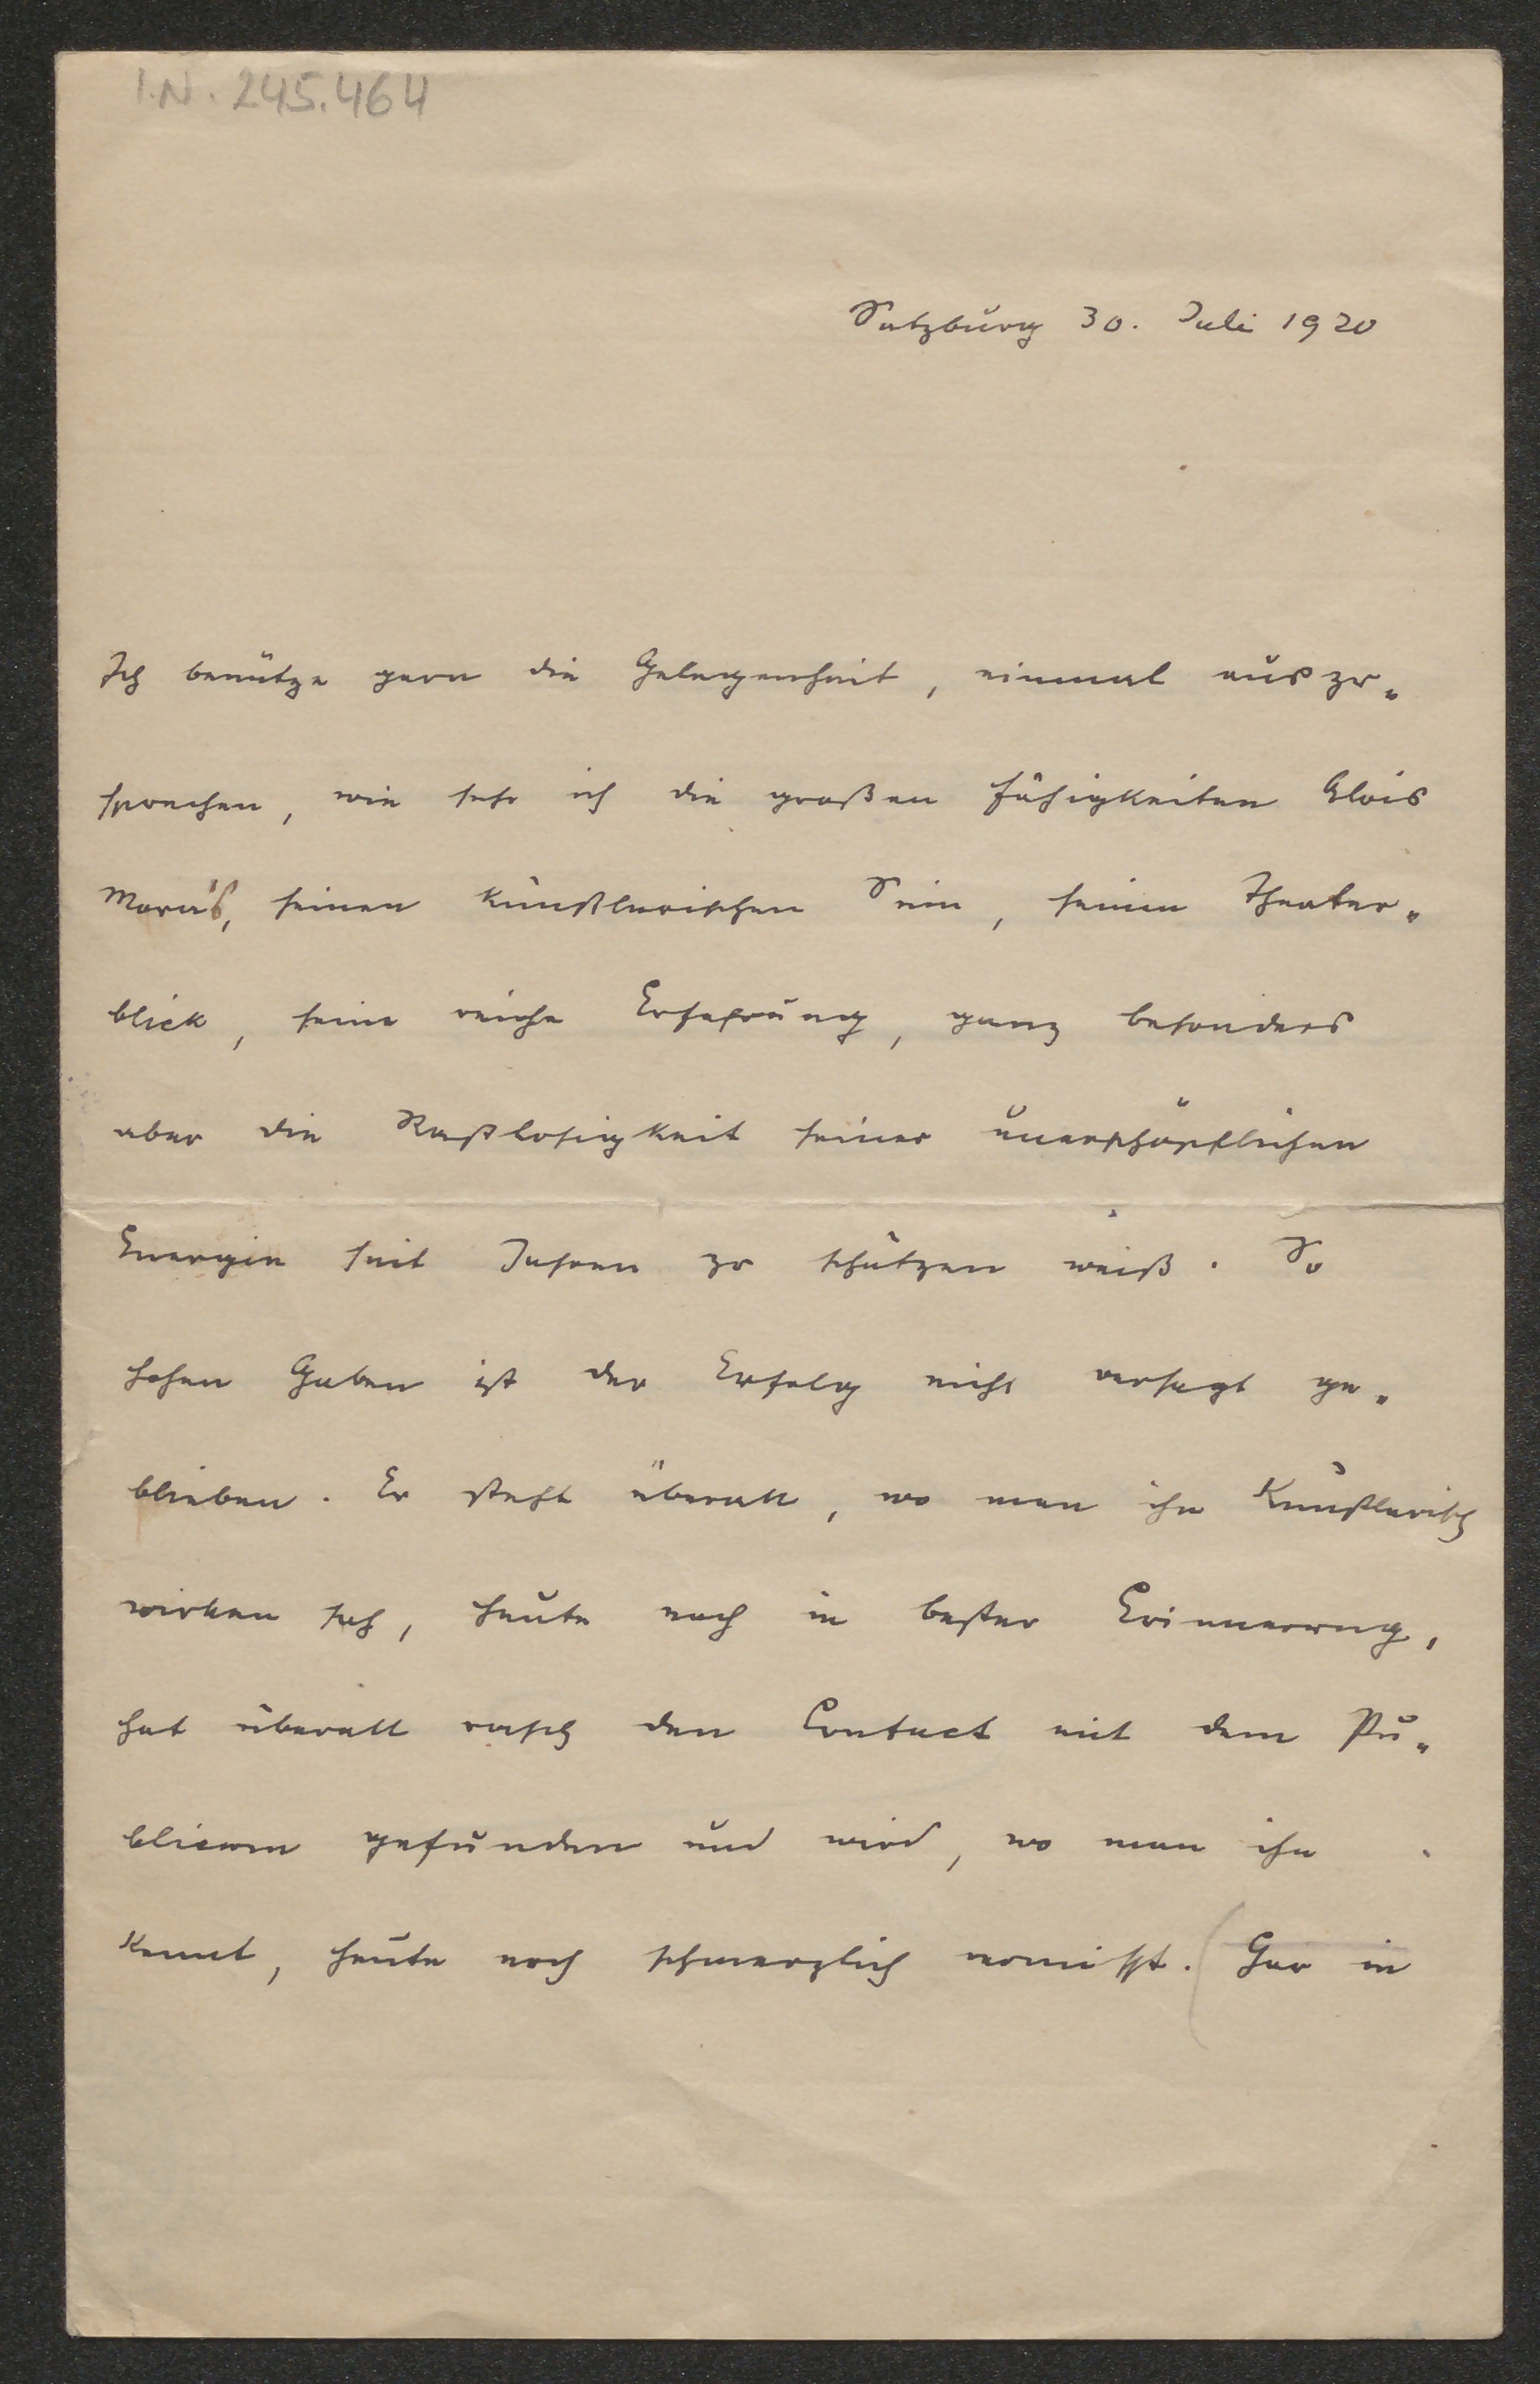 I.N. 245.464
Salzburg 30. Juli 1920
Ich benütze gern die Gelegenheit, einmal auszu-
sprechen, wie sehr ich die großen Fähigkeiten Alois
Mora's, seinen künstlerischen Sinn, seinen Theater-
blick, seine reiche Erfahrung, ganz besonders
aber die Rastlosigkeit seiner unerschöpflichen
Energie seit Jahren zu schätzen weiß. So
hohen Gaben ist der Erfolg nicht versagt ge-
blieben. Er steht überall, wo man ihn künstlerisch
wirken sah, heute noch in bester Erinnerung,
hat überall rasch den Contact mit dem Pu-
blicum gefunden und wird, wo man ihn
kennt, heute noch schmerzlich vermisst. (Gar in